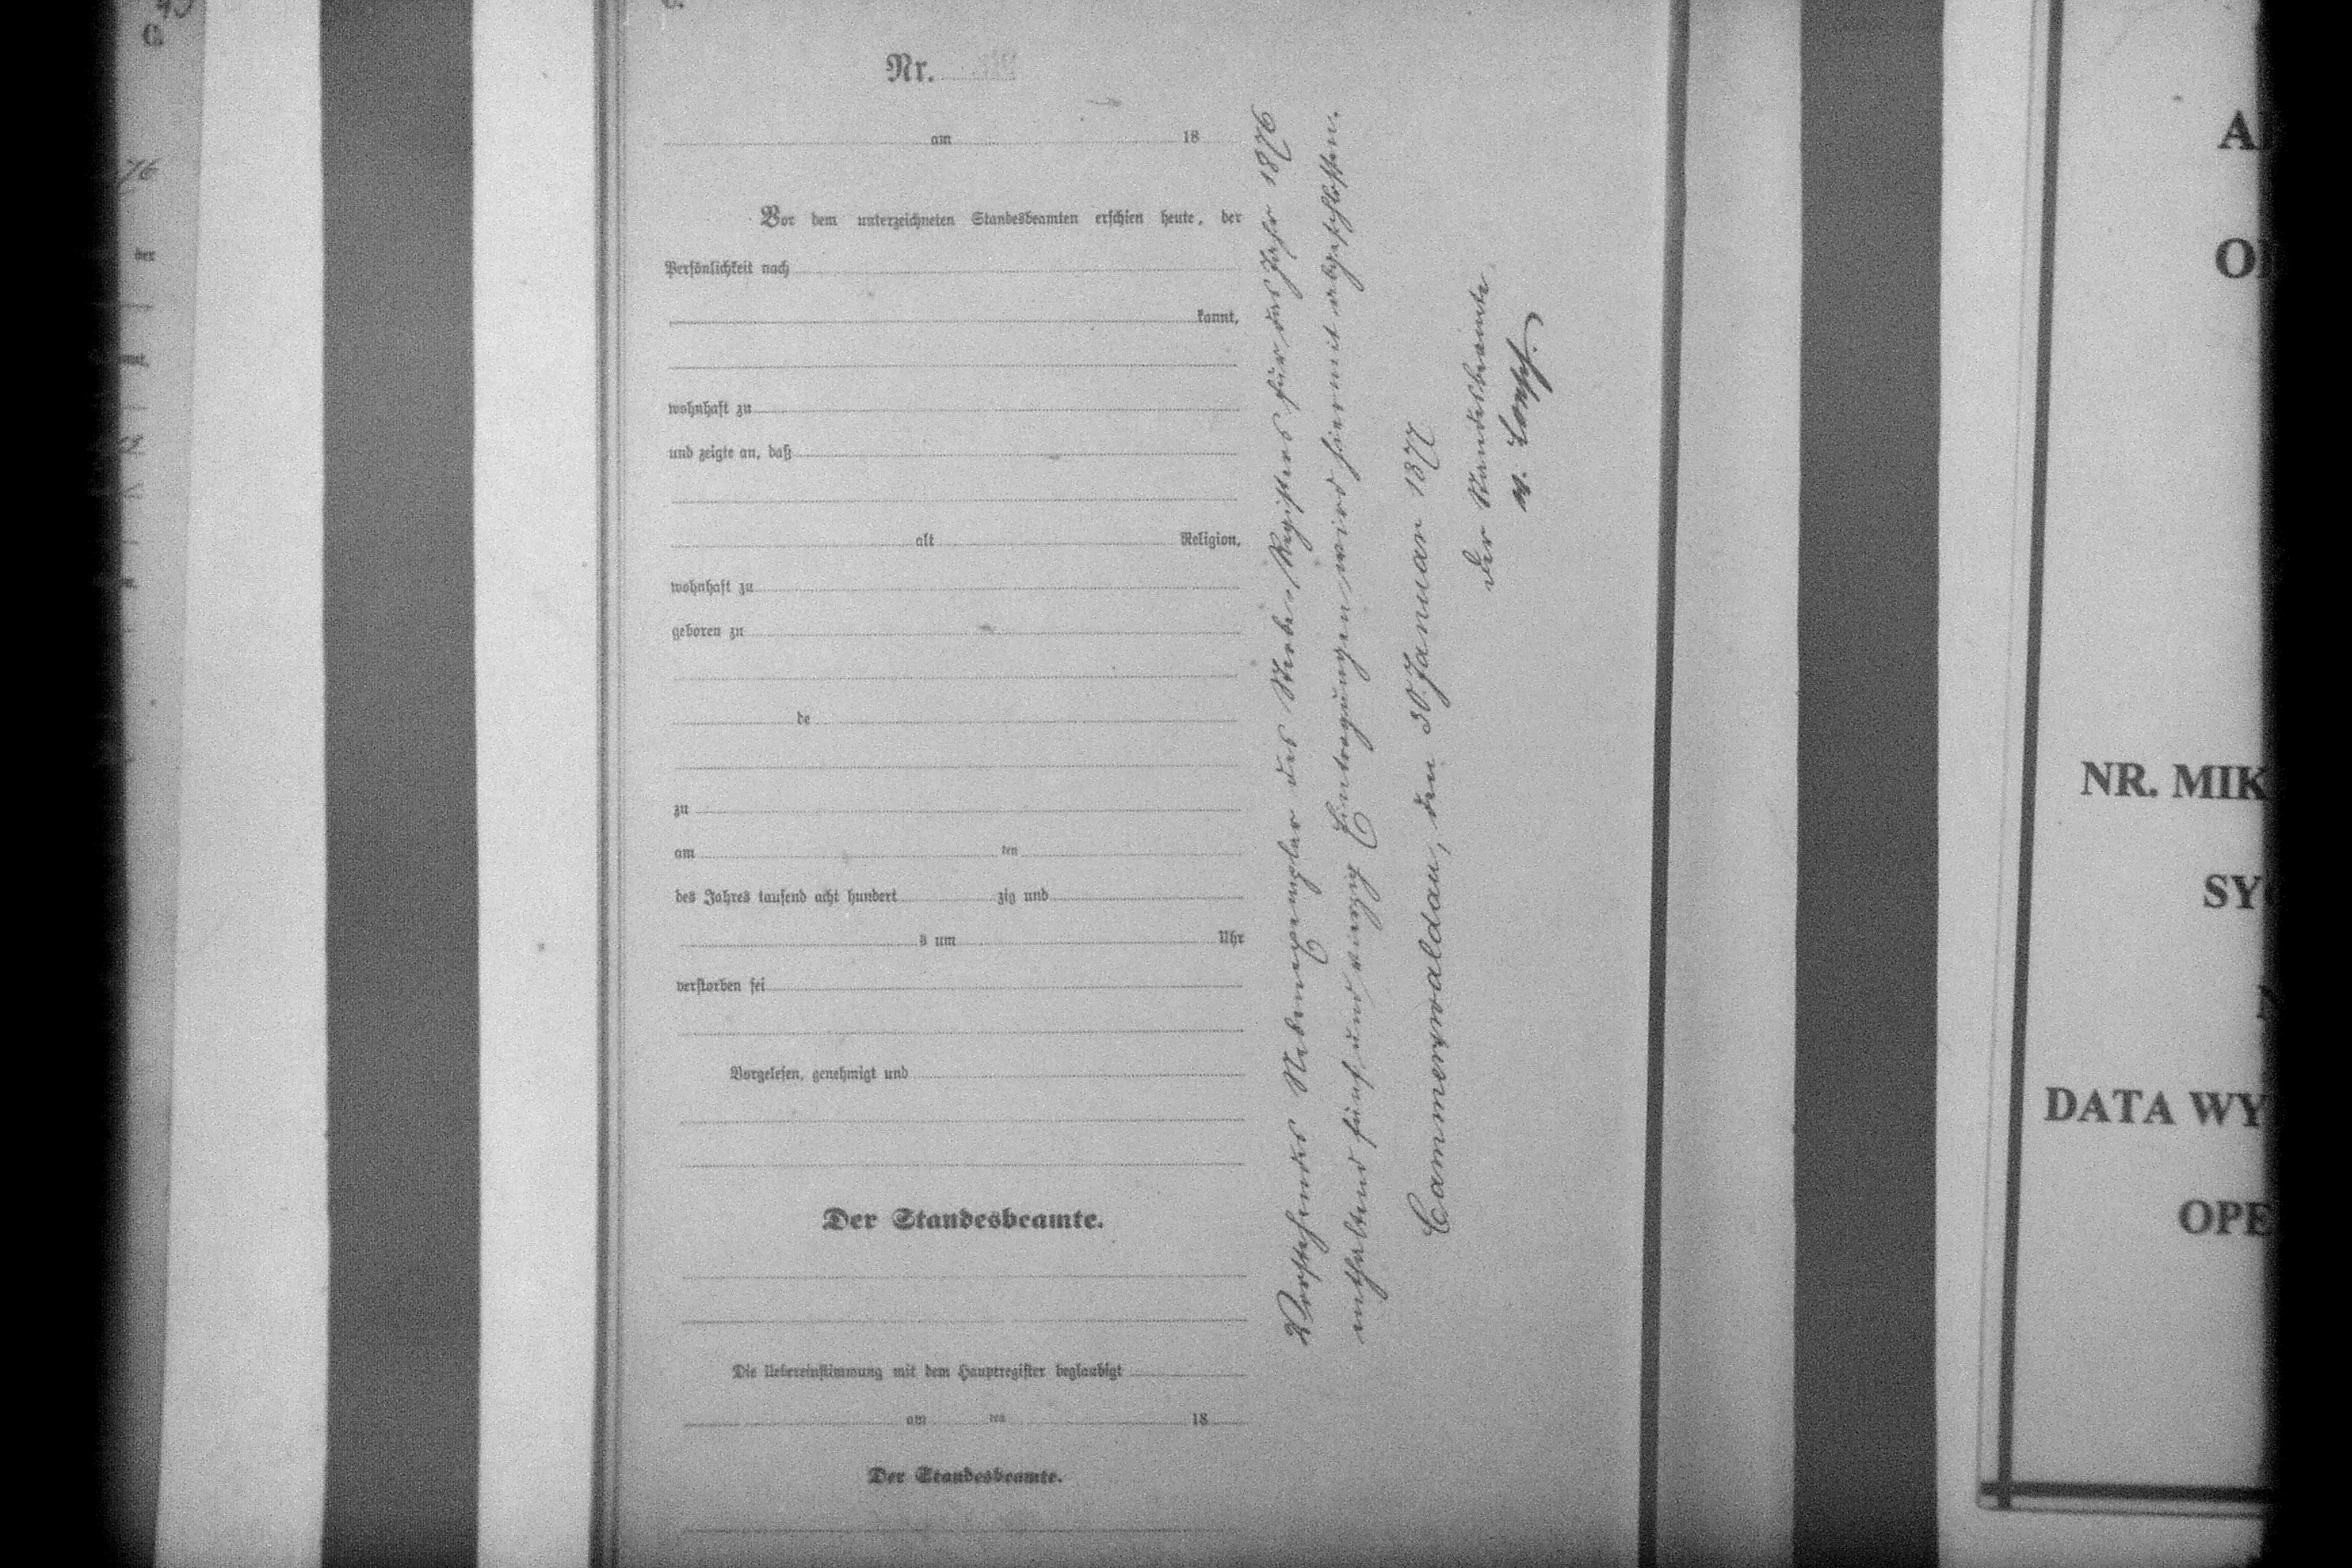 C.
Nr.
am 18
Vor dem unterzeichneten Standesbeamten erschien heute, der
Persönlichkeit nach
kannt,
wohnhaft zu
und zeigte an, daß
alt Religion,
wohnhaft zu
geboren zu
de
zu
am den
des Jahres tausend acht hundert zig und
s um Uhr
verstorben sei
Vorgelesen, genehmigt und
Der Standesbeamte.
Die Uebereinstimmung mit dem Hauptregister beglaubigt
am ten 18
Der Standesbeamte.
Vorstehendes Nebenexemplar des Sterbe-Registers für das Jahr 1876
enthaltend fünf und vierzig Eintragungen wird hiermit abgeschlossen.
Cammerswaldau, den 30. Januar 1877
Der Standesbeamte
C.
76
der
A
O
NR. MIK
SY
DATA WY
OPE